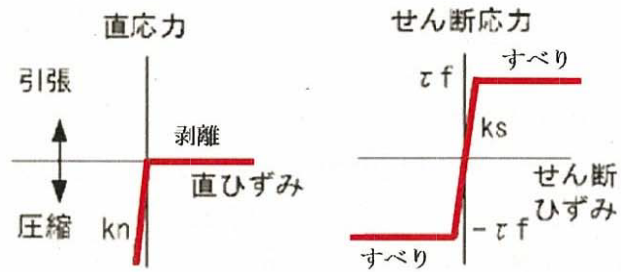 直応力
引張
圧縮
剥離
直ひずみ
kn
せん断応力
すべり
τf
ks
せん断
ひずみ
-τf
すべり